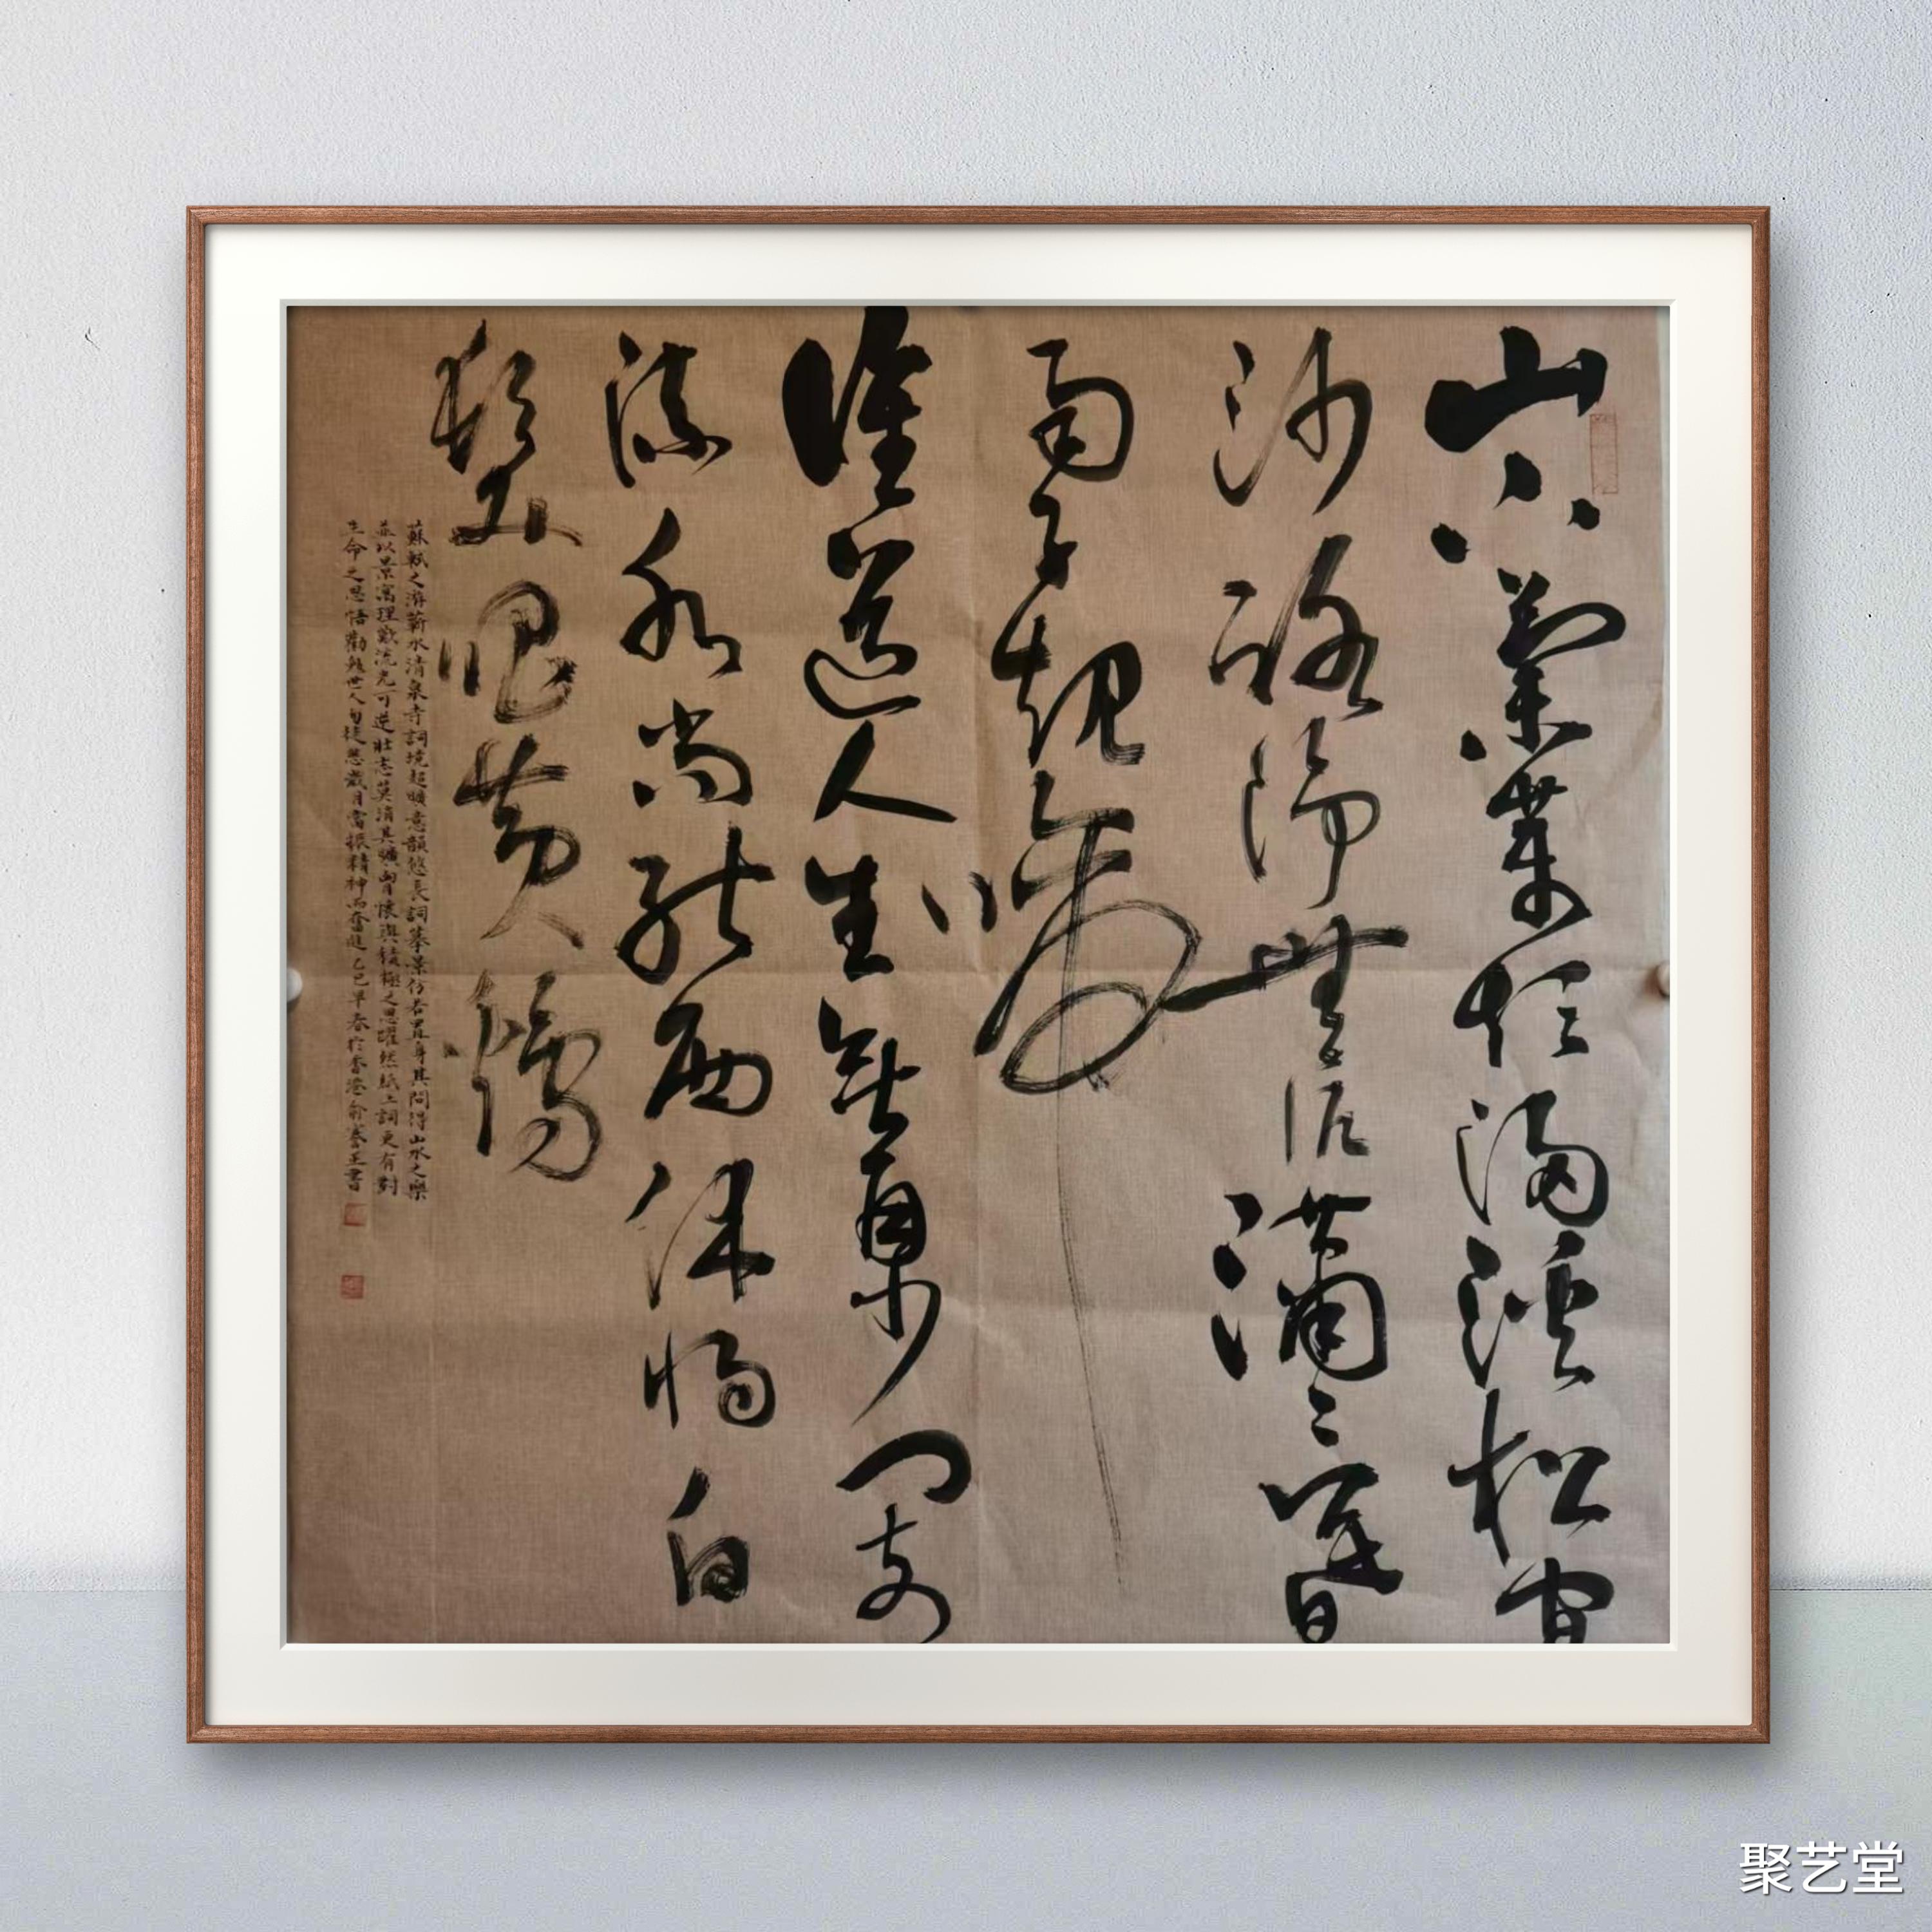 山下蘭芽短浸溪松間
沙路淨無泥瀟瀟暮
雨子規啼
誰道人生無再少門前
流水尚能西休將白
髮唱黃雞
蘇軾之游蘄水清泉寺詞境超曠意韻悠長詞摹景仿若置身其間得山水之樂
並以景寓理歎流光可逆壯志莫消其曠胸懷與積極之思躍然紙上詞更有對
生命之思悟勸勉世人勿徒悲歲月當振精神而奮進乙巳早春於香港俞書
聚艺堂